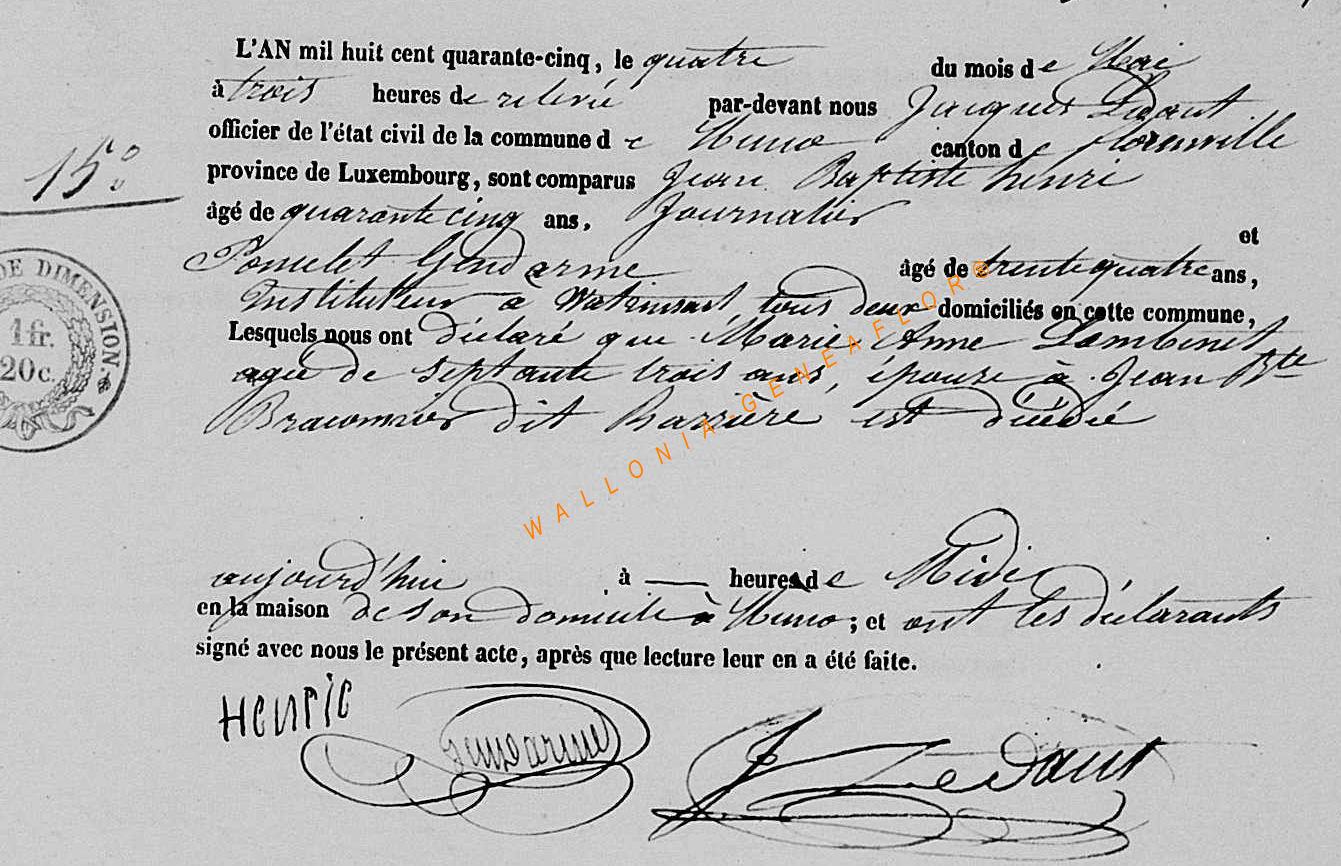 L'AN mil huit cent quarante-cinq, le quatre du mois de Mai
à trois heures de relevée par-devant nous Jacques Ledant
officier de l'état civil de la commune de Muno canton de florenville
province de Luxembourg, sont comparus Jean Baptiste henri
âgé de quarante cinq ans, Journalier
et
Poncelet Gendarme âgé de trente quatre ans,
Instituteur à Watrinsart, tous deux domiciliés en cette commune,
Lesquels nous ont déclaré que Marie Anne Lambinet
agée de septante trois ans, épouse à Jean Bte
Braconnier dit Barrière est décédée
aujourd'hui à — heures de Midi
en la maison de son domicile à Muno ; et ont les déclarants
signé avec nous le présent acte, après que lecture leur en a été faite.
15°
DE DIMENSION.
1 fr.
20 c.
Henric
Gendarme
J Ledant
WALLONIA-GENEAFLOR©